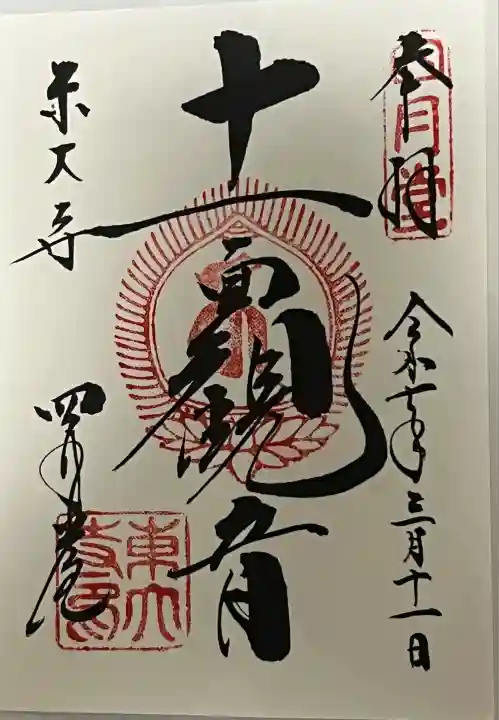 奉拝
四月堂
令和七年三月十一日
十一面観音
東大寺
四月堂
東大